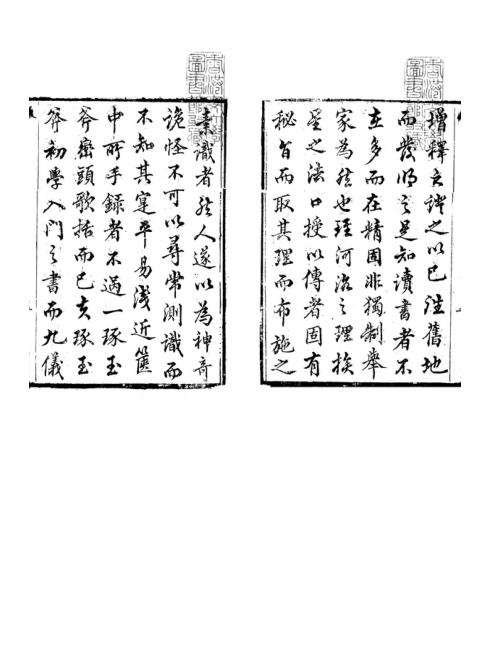 增釋之以已注舊地
而發明之是知讀書者不
在多而在精固非獨制舉
家為然也河洛之理挨
星之法口授以傳者固有
秘旨而取其理而布施之
素識者然人遂以為神奇
詭怪不可以尋常測識而
不知其寔平易淺近篋
中所手録者不過一琢玉
斧巒頭歌括而已夫琢玉
斧初學入門之書而九儀